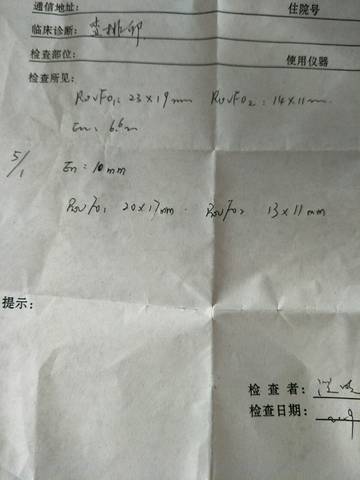 通信地址: 住院号
临床诊断: 查排卵
检查部位: 使用仪器
检查所见:
RovFO1: 23×19mm RovFO2: 14×11mm
En: 6.6m
5/1 En: 10mm
RovFO1 20×17mm. RovFO2 13×11mm
提示:
检 查 者:
检查日期: